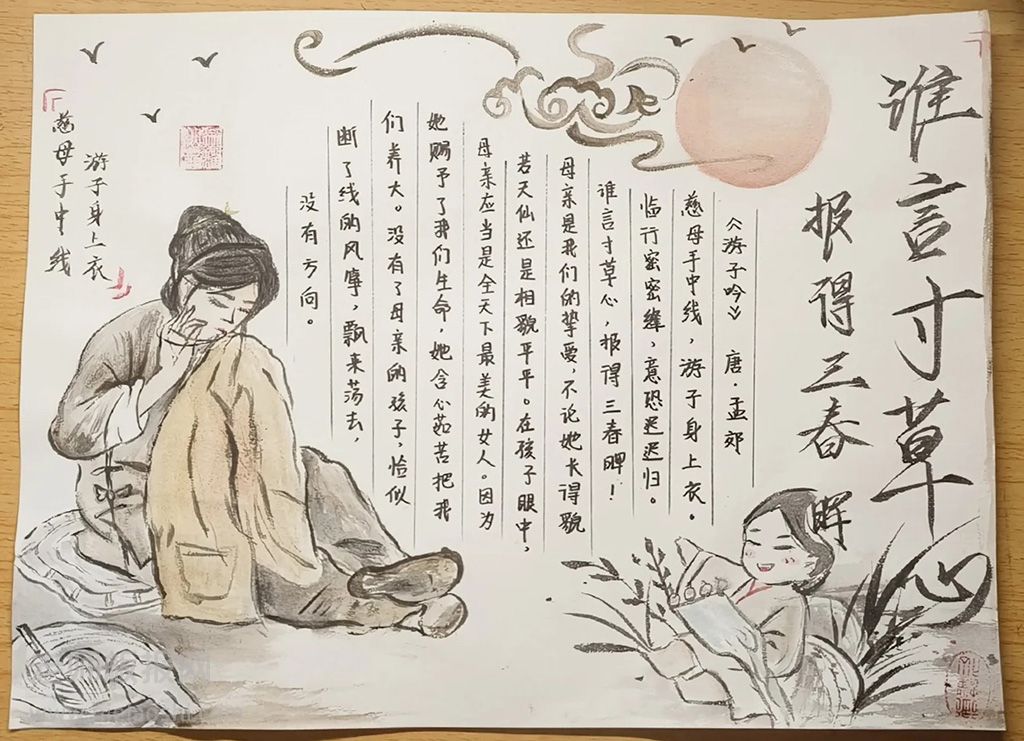 谁言寸草心
报得三春晖
《游子吟》 唐·孟郊
慈母手中线，游子身上衣。
临行密密缝，意恐迟迟归。
谁言寸草心，报得三春晖！
母亲是我们的挚爱，不论她长得貌
若天仙还是相貌平平。在孩子眼中，
母亲应当是全天下最美的女人。因为
她赐予了我们生命，她含心茹苦把我
们养大。没有了母亲的孩子，恰似
断了线的风筝，飘来荡去，
没有方向。
游子身上衣
慈母手中线